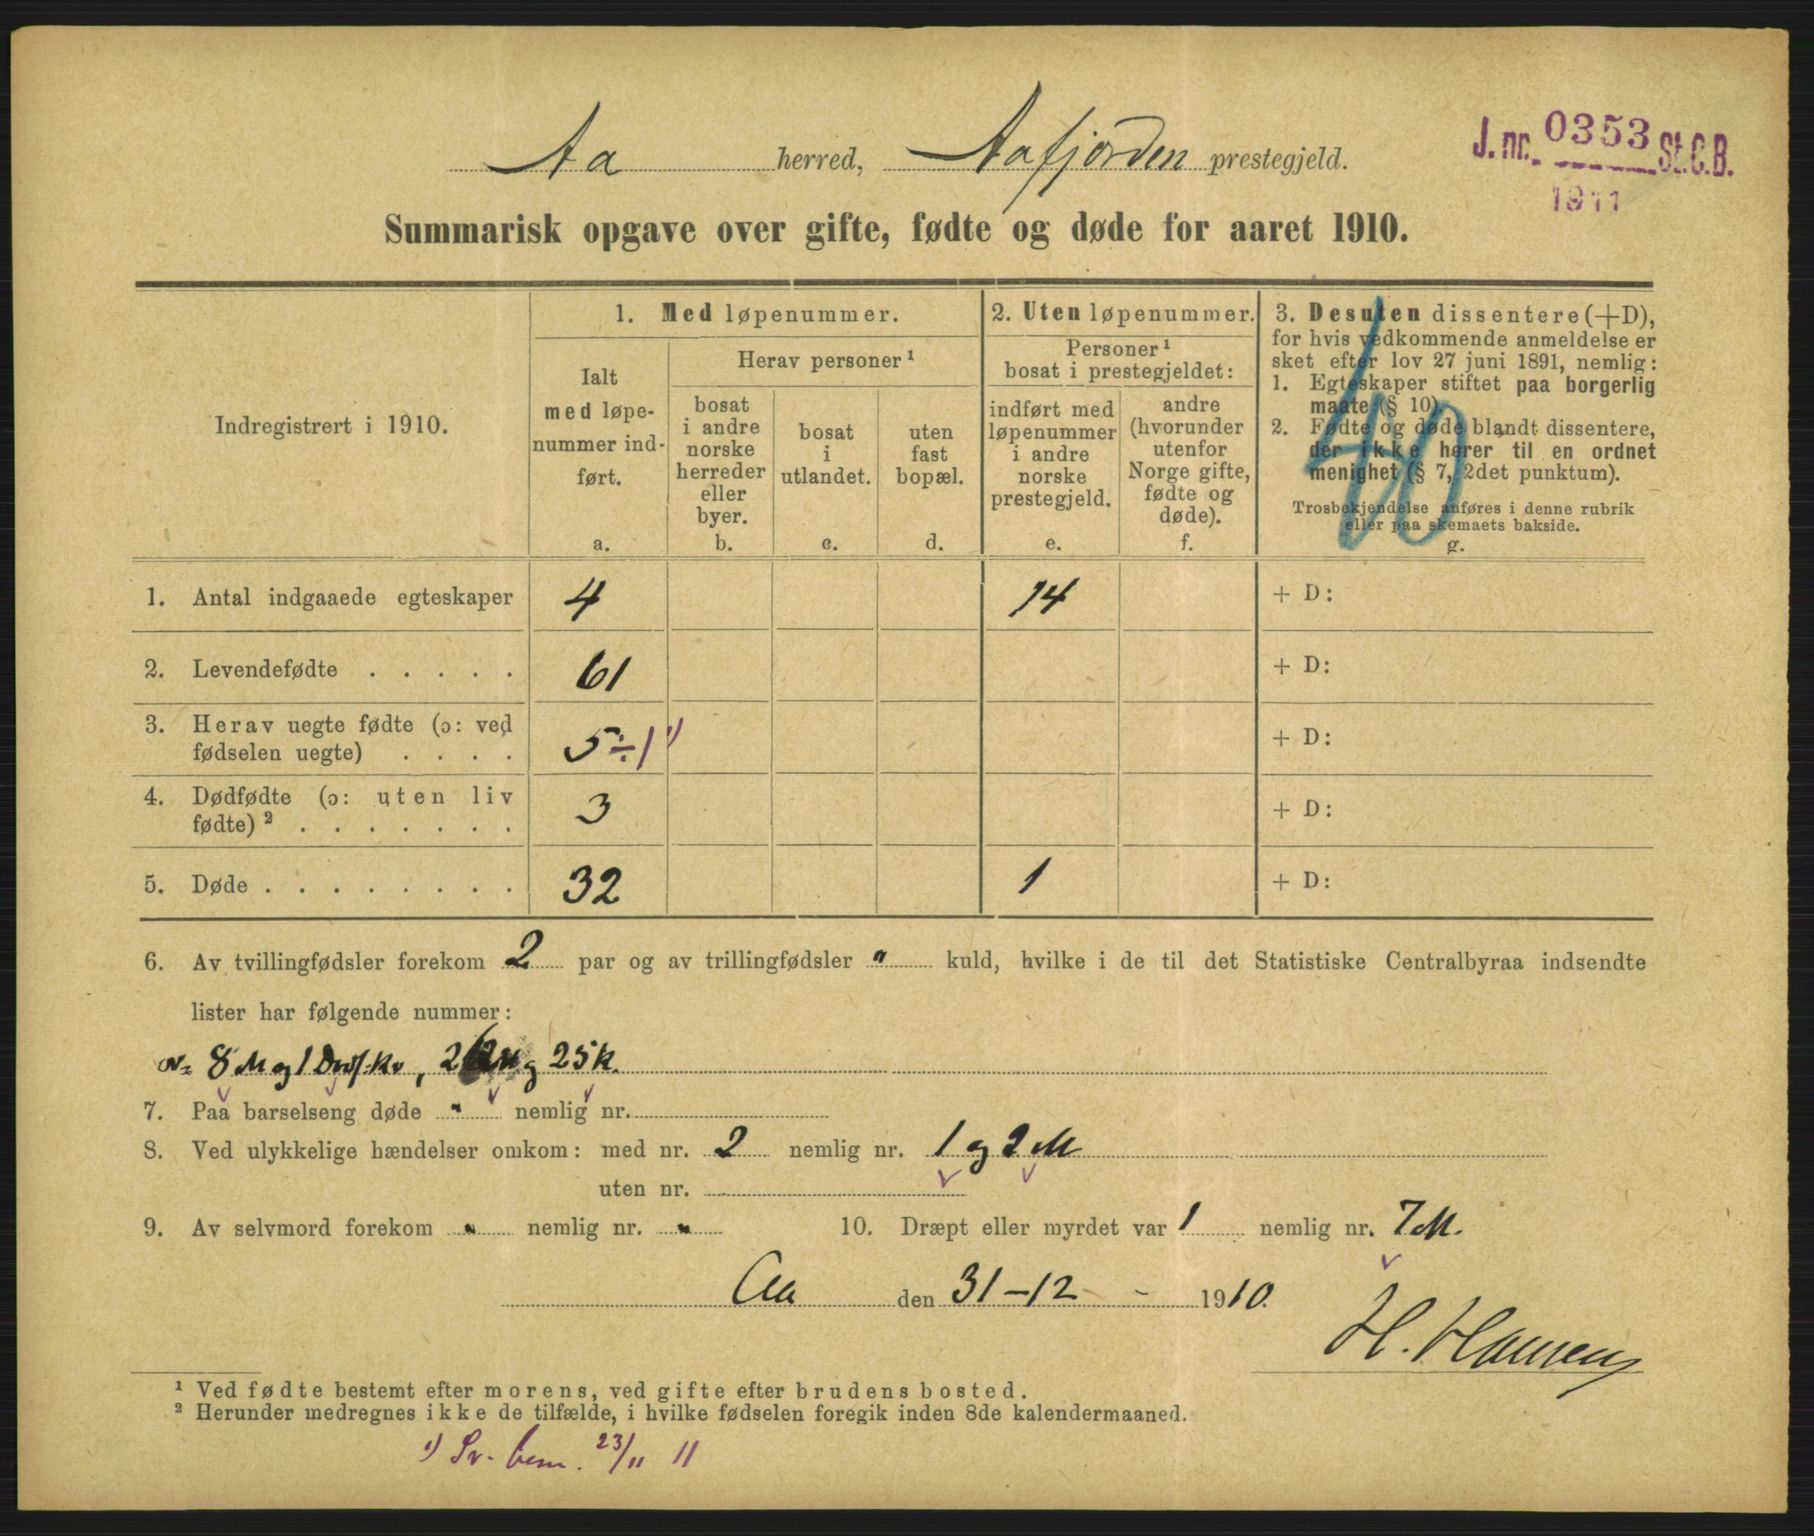 Aa herred, Aafjorden prestegjeld.
J. nr. 0353 St.C.B.
1911
Summarisk opgave over gifte, fødte og døde for aaret 1910.
Indregistrert i 1910.
1. Med løpenummer.
Ialt
med løpe-
nummer ind-
ført.
a.
Herav personer ¹
bosat
i andre
norske
herreder
eller
byer.
b.
bosat
i
utlandet.
c.
uten
fast
bopæl.
d.
2. Uten løpenummer.
Personer ¹
bosat i prestegjeldet:
indført med
løpenummer
i andre
norske
prestegjeld.
e.
andre
(hvorunder
utenfor
Norge gifte,
fødte og
døde).
f.
3. Desuten dissentere (+D),
for hvis vedkommende anmeldelse er
sket efter lov 27 juni 1891, nemlig:
1. Egteskaper stiftet paa borgerlig
maate (§ 10).
2. Fødte og døde blandt dissentere,
der ikke hører til en ordnet
menighet (§ 7, 2det punktum).
Trosbekjendelse anføres i denne rubrik
eller paa skemaets bakside.
g.
40
1. Antal indgaaede egteskaper 4 14 + D:
2. Levendefødte . . . . . 61 + D:
3. Herav uegte fødte (ɔ: ved
fødselen uegte) . . . . 5 ÷ 1 ¹⁾ + D:
4. Dødfødte (ɔ: uten liv
fødte) ² . . . . . . . 3 + D:
5. Døde . . . . . . . . 32 1 + D:
6. Av tvillingfødsler forekom 2 par og av trillingfødsler " kuld, hvilke i de til det Statistiske Centralbyraa indsendte
lister har følgende nummer:
8 M og 1 , og 25 K.
7. Paa barselseng døde " nemlig nr.
8. Ved ulykkelige hændelser omkom: med nr. 2 nemlig nr. 1 og 2 M
uten nr.
9. Av selvmord forekom " nemlig nr. " 10. Dræpt eller myrdet var 1 nemlig nr. 7 M.
Aa den 31-12 - 1910.
H. Hansen
¹ Ved fødte bestemt efter morens, ved gifte efter brudens bosted.
² Herunder medregnes ikke de tilfælde, i hvilke fødselen foregik inden 8de kalendermaaned.
¹⁾ Sv. bem. 23/11 11